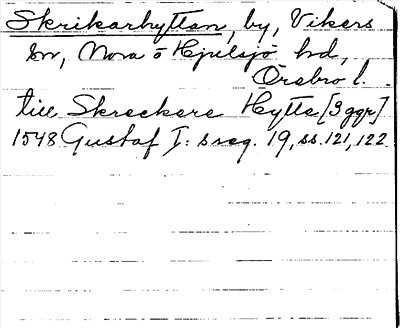 Skrikarhyttan, by, Vikers
sn, Nora o Hjulsjö hd,
Örebro l.
till Skreckere Hytte [3 ggr]
1548 Gustaf I: s reg. 19, ss. 121, 122.